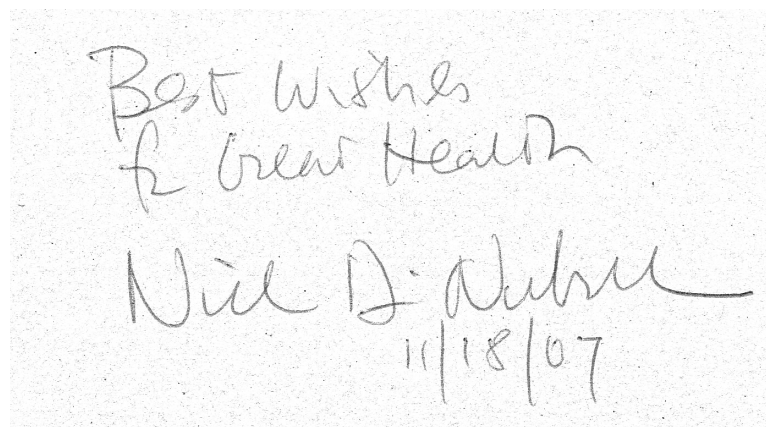 Best Wishes
for Great Health
Nick DiNubile
11/18/07